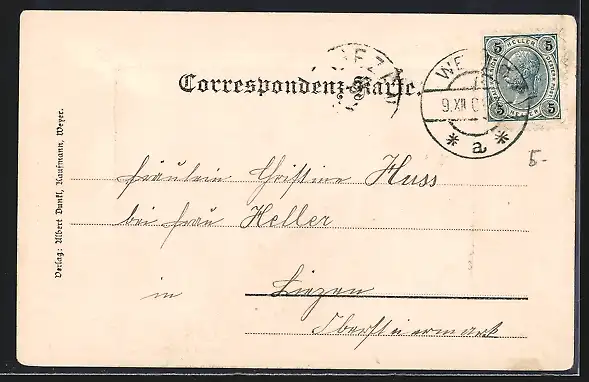 Correspondenz-Karte.
WE
9.XII.0
* a *
5 HELLER 5
5 HELLER 5
5-
Fräulein Christine Huss
bei Frau Heller
in Liezen
Obersteiermark
Verlag: Albert Dunkl, Kaufmann, Weyer.